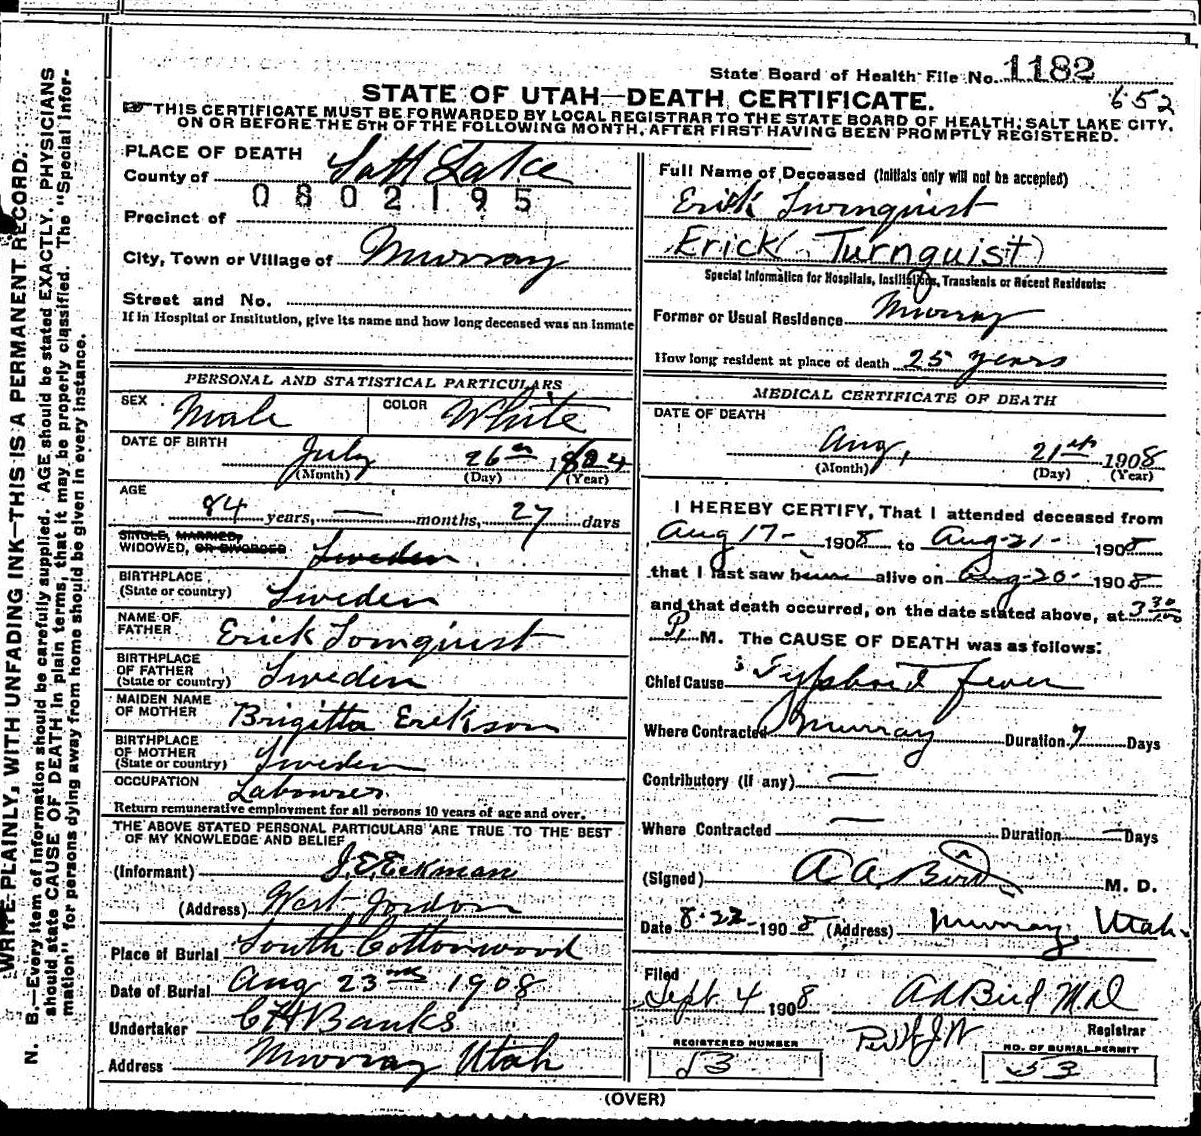 State Board of Health File No. 1182
652
STATE OF UTAH—DEATH CERTIFICATE.
☞THIS CERTIFICATE MUST BE FORWARDED BY LOCAL REGISTRAR TO THE STATE BOARD OF HEALTH, SALT LAKE CITY,
ON OR BEFORE THE 5TH OF THE FOLLOWING MONTH, AFTER FIRST HAVING BEEN PROMPTLY REGISTERED.
WRITE PLAINLY, WITH UNFADING INK—THIS IS A PERMANENT RECORD.
N. B.—Every item of information should be carefully supplied. AGE should be stated EXACTLY. PHYSICIANS
should state CAUSE OF DEATH in plain terms, that it may be properly classified. The "Special Infor-
mation" for persons dying away from home should be given in every instance.
PLACE OF DEATH
County of Salt Lake
0802195
Precinct of
City, Town or Village of Murray
Street and No.
If in Hospital or Institution, give its name and how long deceased was an inmate
PERSONAL AND STATISTICAL PARTICULARS
SEX Male COLOR White
DATE OF BIRTH
July 26th
(Month) (Day) (Year)
AGE
84 years, — months, 27 days
SINGLE, MARRIED,
WIDOWED, OR DIVORCED Sweden
BIRTHPLACE
(State or country) Sweden
NAME OF
FATHER Erick Tornquist
BIRTHPLACE
OF FATHER
(State or country) Sweden
MAIDEN NAME
OF MOTHER Brigitta Erickson
BIRTHPLACE
OF MOTHER
(State or country) Sweden
OCCUPATION Labourer
Return remunerative employment for all persons 10 years of age and over.
THE ABOVE STATED PERSONAL PARTICULARS ARE TRUE TO THE BEST
OF MY KNOWLEDGE AND BELIEF
(Informant) J.E. Eckman
(Address) West Jordon
Place of Burial South Cottonwood
Date of Burial Aug 23rd 1908
Undertaker C H Banks
Address Murray Utah
Full Name of Deceased (Initials only will not be accepted)
Erick Turnquist
Erick Turnquist)
Special Information for Hospitals, Institutions, Transients or Recent Residents:
Former or Usual Residence Murray
How long resident at place of death 25 years
MEDICAL CERTIFICATE OF DEATH
DATE OF DEATH
Aug, 21th 1908
(Month) (Day) (Year)
I HEREBY CERTIFY, That I attended deceased from
Aug 17- 1908 to Aug-21- 1908
that I last saw him alive on Aug-20- 1908
and that death occurred, on the date stated above, at 3 30
P. M. The CAUSE OF DEATH was as follows:
Chief Cause Typhoid fever
Where Contracted Murray Duration 7 Days
Contributory (If any) —
Where Contracted — Duration — Days
(Signed) A A. Bird M. D.
Date 8-22- 1908 (Address) Murray, Utah-
Filed
Sept 4 1908 A A Bird M.D.
Registrar
REGISTERED NUMBER
53
NO. OF BURIAL PERMIT
53
(OVER)